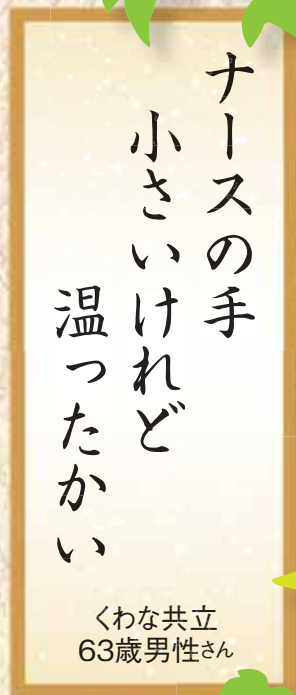 ナースの手
小さいけれど
温ったかい
くわな共立
63歳男性さん